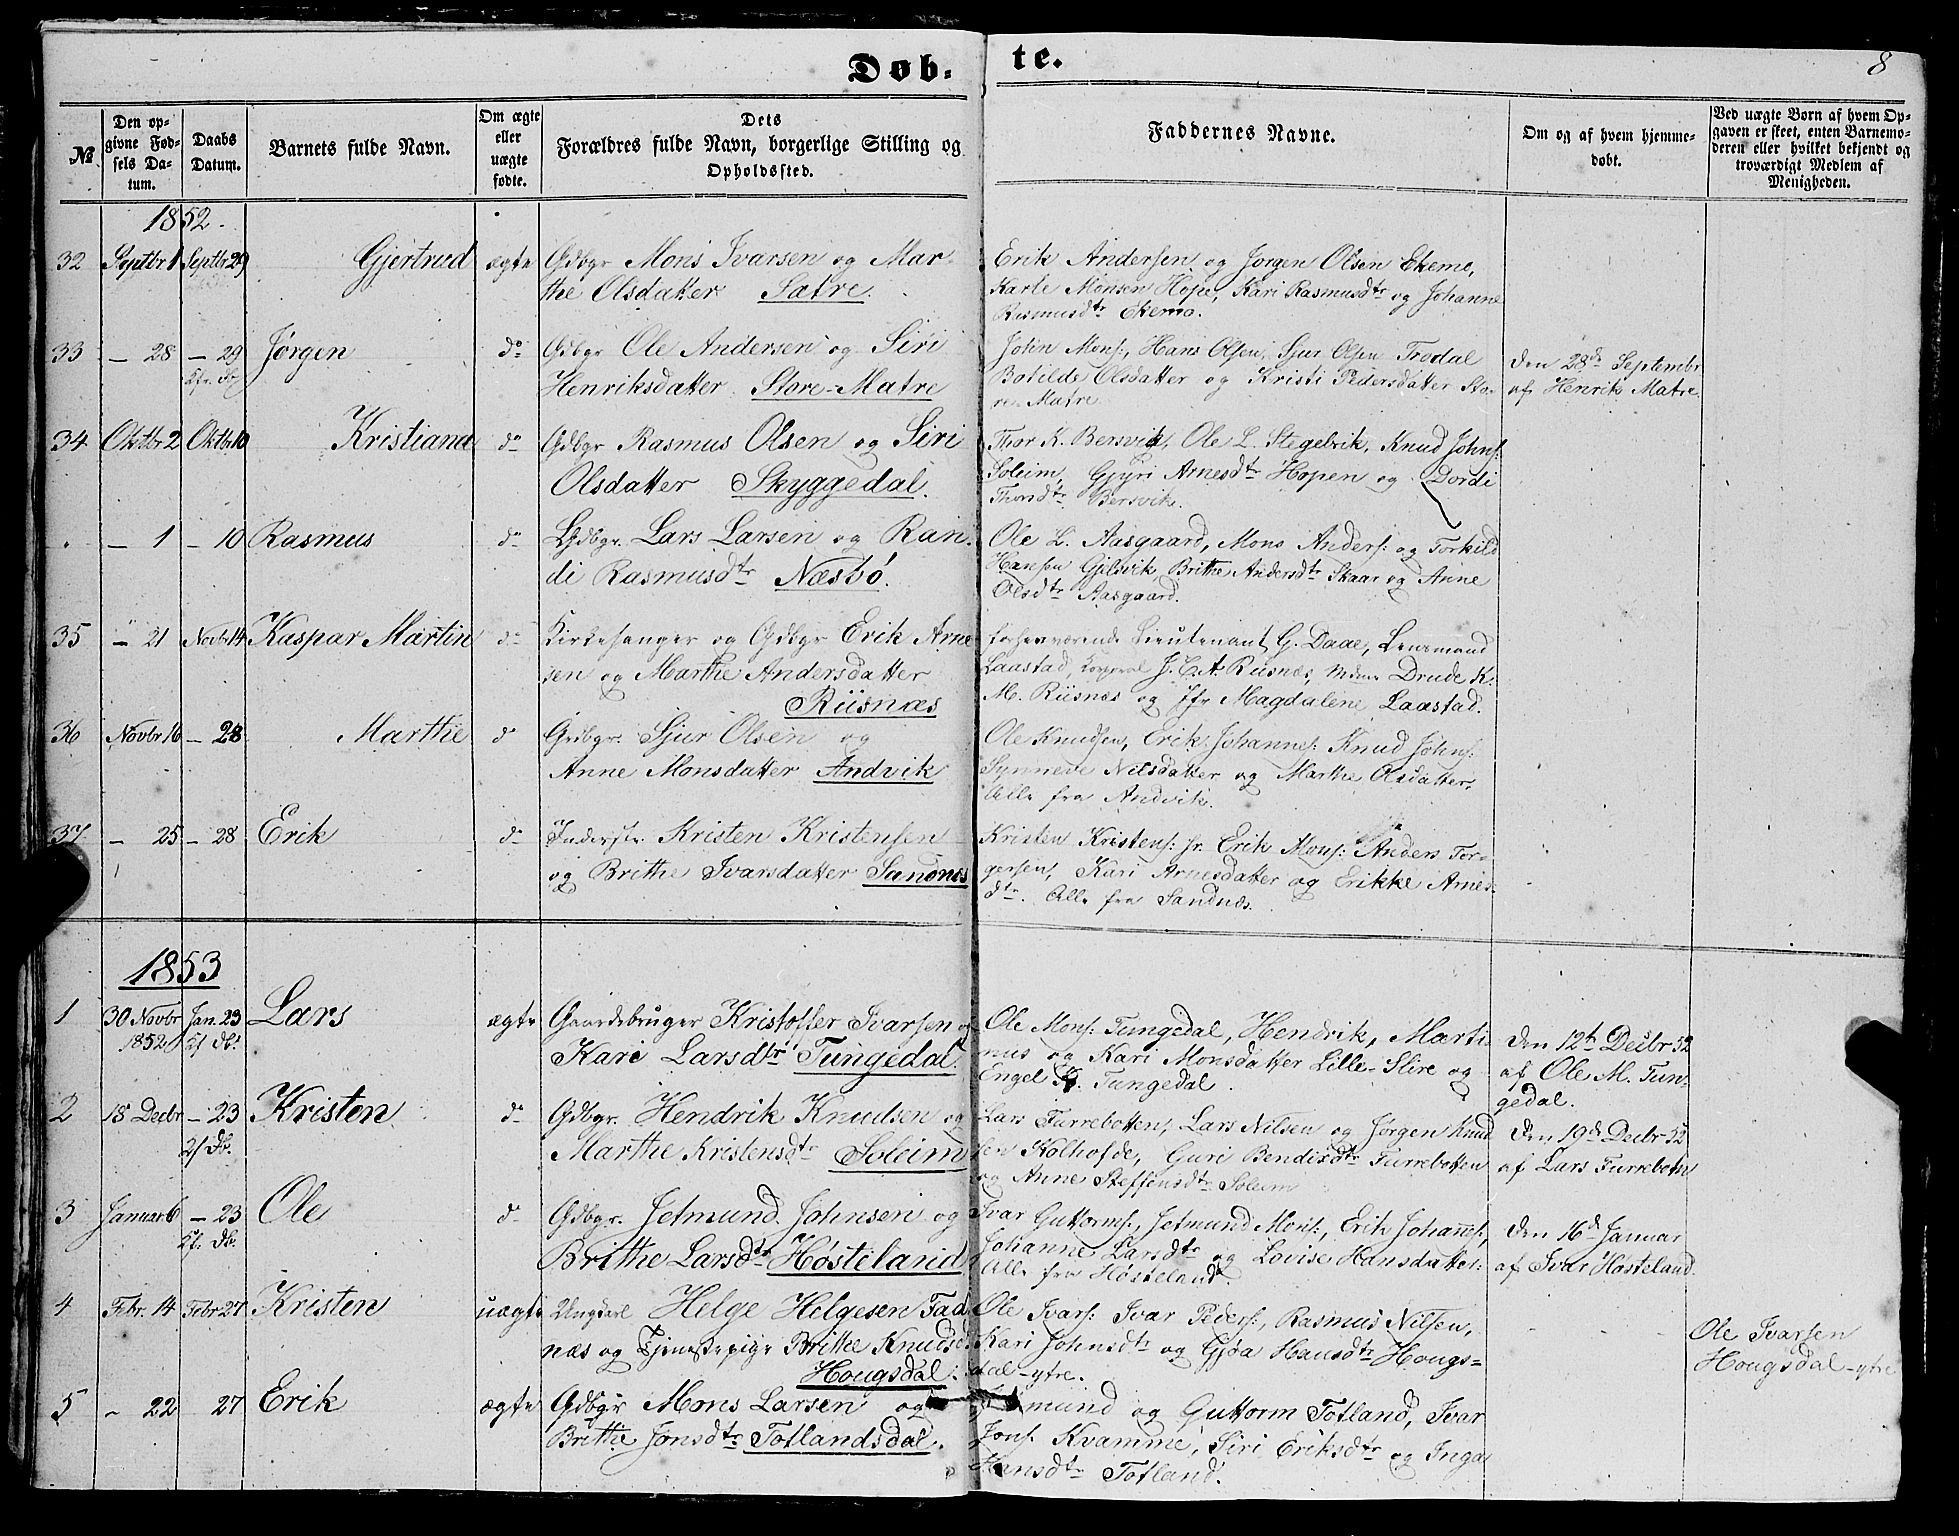 Døb-te.
8
№
Den op-
givne Fød-
sels Da-
tum.
Daabs
Datum.
Barnets fulde Navn.
Om ægte
eller
uægte
fødte.
Dets
Forældres fulde Navn, borgerlige Stilling og
Opholdssted.
Faddernes Navne.
Om og af hvem hjemme-
døbt.
Ved uægte Børn af hvem Op-
gaven er skeet, enten Barnemo-
deren eller hvilket bekjendt og
troværdigt Medlem af
Menigheden.
1852.
32 Septbr 1 Septbr 29 Gjertrud ægte
Gdbgr Mons Ivarsen og Mar-
the Olsdatter Sætre.
Erik Andersen og Jørgen Olsen Ekeme,
Karle Monsen Hope, Kari Rasmusdtr og Johanne
Rasmusdtr Ekemo.
33 — 28 — 29 Jørgen do
Gdbgr Ole Andersen og Siri
Henriksdatter Store-Matre
John Mons:, Hans Olsen, Sjur Olsen Trodal
Botilde Olsdatter og Kristi Pedersdatter Sto-
re-Matre
Den 28de Septembr
af Henrik Matre.
34 Oktbr 2 Oktbr 10 Kristiana do
Gdbgr Rasmus Olsen og Siri
Olsdatter Skyggedal.
Thor K. Bersvik, Ole L. Stegelvik, Knud Johns:
Soleim, Gjyri Arnesdtr Hopen og Dordi
Thorsdtr Bersvik.
— 1 — 10 Rasmus do
Gdbgr. Lars Larsen og Ran-
di Rasmusdtr Næsbø.
Ole L. Aasgaard, Mons Anders: og Torkild
Hansen Gilsvik, Brithe Andersdtr Skaar og Anne
Olsdtr Aasgaard.
35 — 21 Novbr 14 Kaspar Martin do
Kirkesanger og Gdbgr Erik Arne
sen og Marthe Andersdatter
Riisnæs
forhenværende Lieutenant G. Daae, Lensmand
Laastad, Korporal J. C. A. Risnæs, Mdme Drude K.
M. Riisnæs og Jfr Magdalene Laastad.
36 Novbr 16 — 28 Marthe do
Grdbgr. Sjur Olsen og
Anne Monsdatter Andvik
Ole Knudsen, Erik Johannes: Knud Johns:
Synneve Nilsdatter og Marthe Olsdatter,
Alle fra Andvik.
37 — 25 — 28 Erik do
Inderstr. Kristen Kristensen
og Brithe Ivarsdatter Sandnæs
Kristen Kristens: sr. Erik Mons: Anders Tor-
gersen, Kari Arnesdatter og Erikke Arnes-
dtr. Alle fra Sandnæs.
1853
1 30 Novbr Jan. 23 Lars ægte
1852
Gaardebruger Kristoffer Ivarsen og
Kari Larsdtr Tungedal.
Ole Mons: Tungedal, Hendrik, Marti-
nus og Kari Monsdatter Lille-Slire og
Engel K. Tungedal.
Den 12te Decbr 52
af Ole M. Tun-
gedal.
2 18 Decbr — 23 Kristen do
Gdbgr. Hendrik Knudsen og
Marthe Kristensdtr Soleim
Lars Furrebotten, Lars Nilsen og Jørgen Knud
sen Kolhofde, Guri Bendixdtr Furrebotten
og Anne Steffensdtr Soleim
Den 19de Decbr 52
af Lars Furrebotn
3 Januar 6 — 23 Ole do
Gdbgr. Jetmund Johnsen og
Brithe Larsdtr Høsteland
Ivar Guttorms:, Jetmund Mons:, Erik Johanns:,
Johanne Larsdtr og Lovise Hansdatter:
Alle fra Høsteland.
Den 16de Januar
af Ivar Høsteland.
4 Febr. 14 Febr 27 Kristen uægte
Ungkarl Helge Helgesen Fad
næs og Tjenestepige Brithe Knudsd.
Hougsdal.
Ole Ivars: Ivar Peders:, Rasmus Nilsen,
Kari Johnsdtr og Gjøa Hansdtr Hougs=
dal-ytre.
Ole Ivarsen
Hougsdal-ytre
5 — 22 27 Erik ægte
Gdbgr Mons Larsen og
Brithe Jonsdtr Totlandsdal.
mund og Guttorm Totland, Ivar
Jons: Kvamme, Siri Eriksdtr og Inga
Hansdtr Totland.